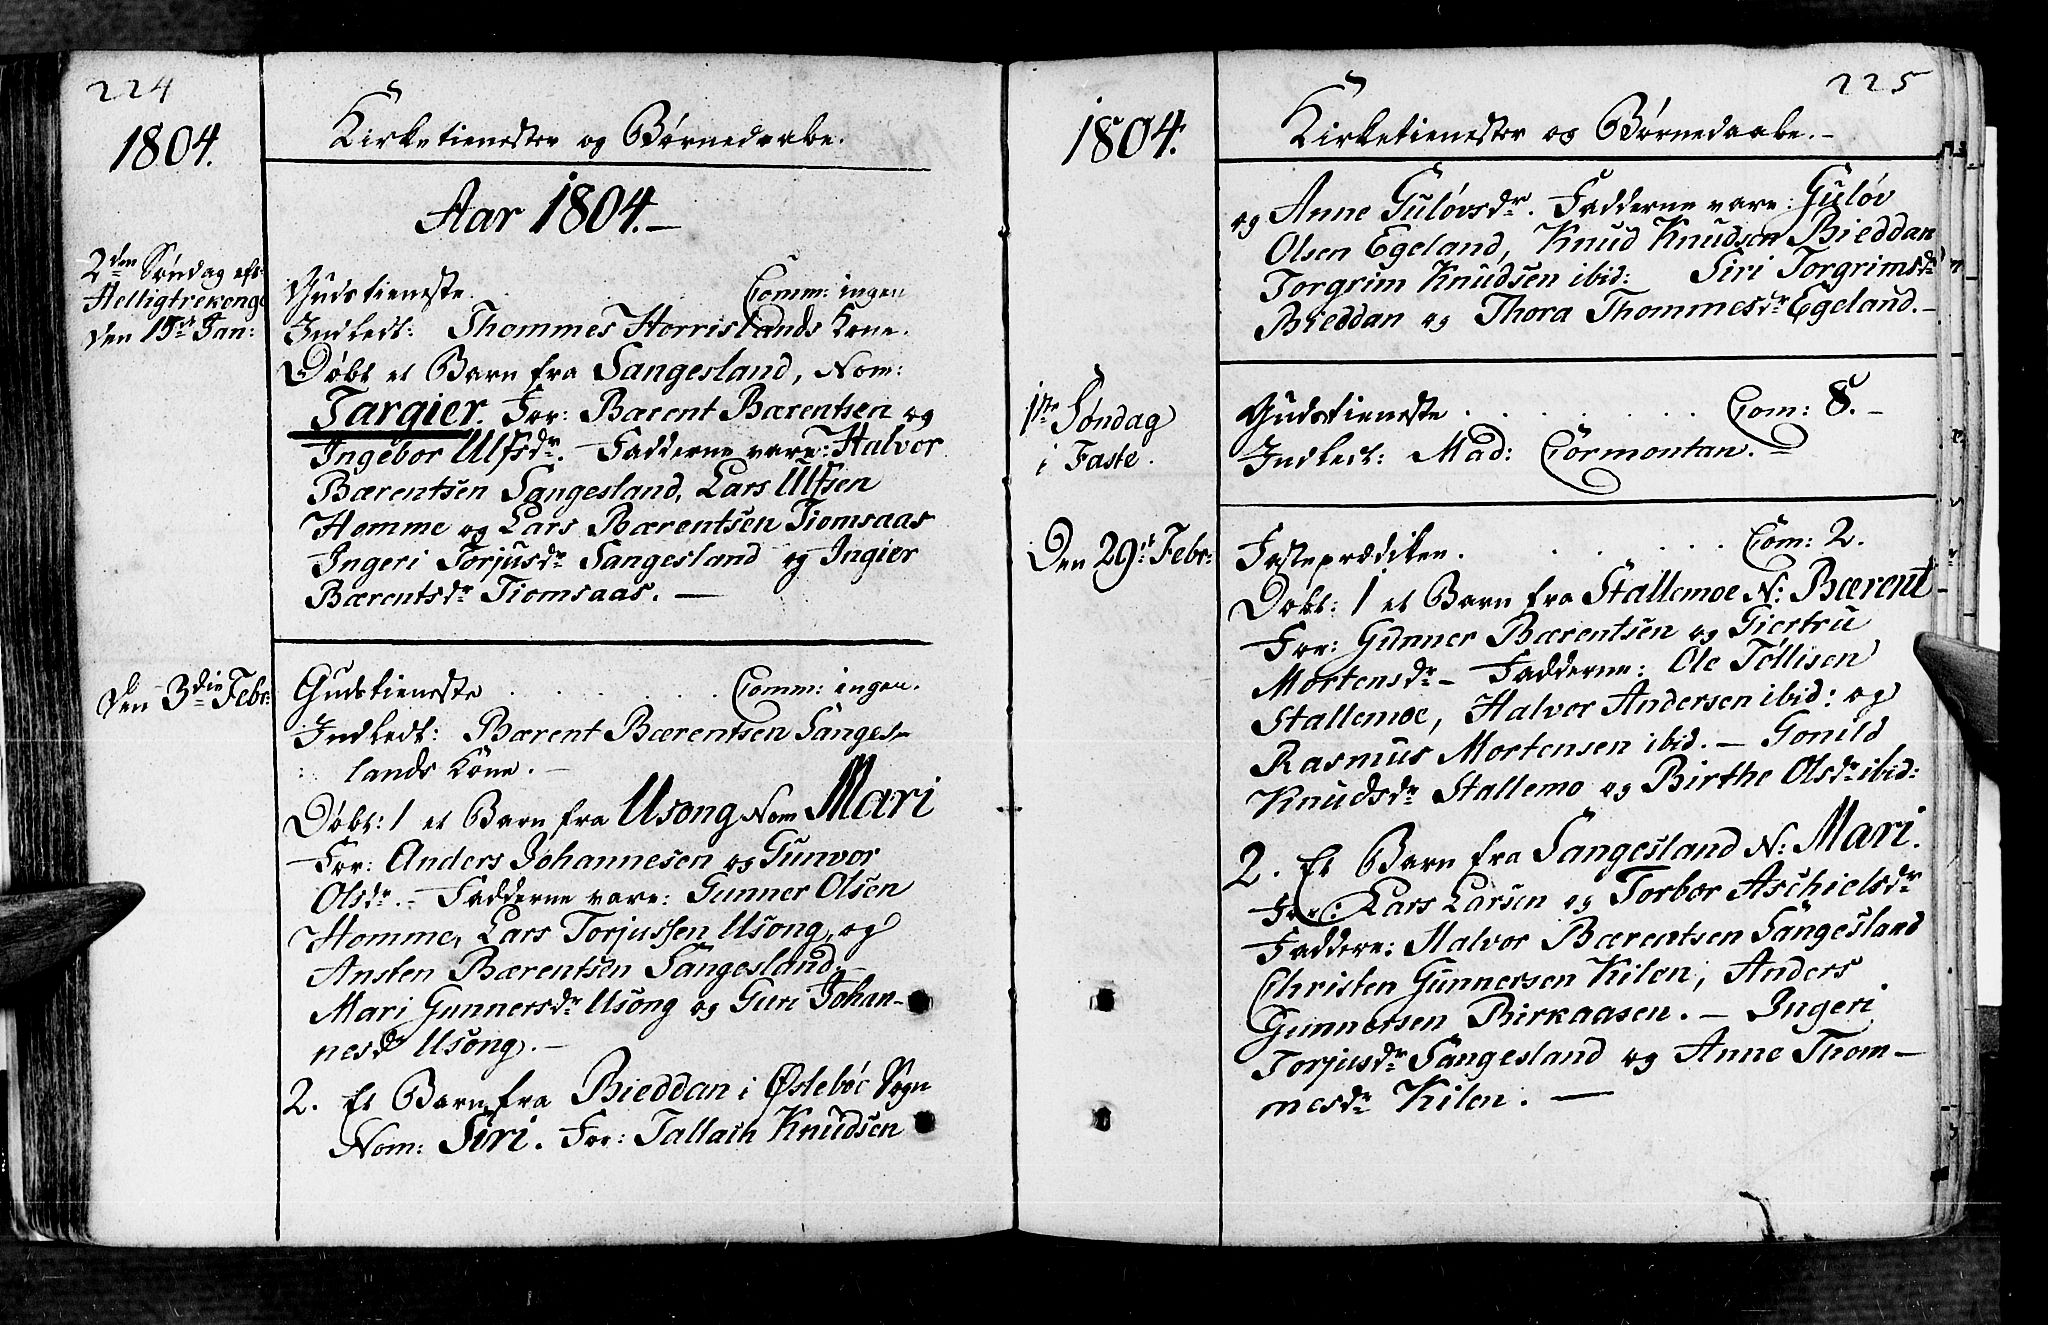 224
1804.
Kirketienester og Børnedaabe.
Aar 1804.—
2den Søndag eft:
Helligtrekong:
den 15de Jan:
Gudstieneste. Comm: ingen
Indledt: Thommes Horrislands Kone.
Døbt et Barn fra Sangesland, Nom:
Targier. For: Bærent Bærentsen og
Ingebor Ulfsdr. – Fadderne vare: Halvor
Bærentsen Sangesland, Lars Ulfsen
Homme og Lars Bærentsen Tiomsaas
Ingeri Torjusdr Sangesland og Ingier
Bærentsdr Tiomsaas. —
den 3die Febr:
Gudstieneste . . . . . . Comm: ingen.
Indledt: Bærent Bærentsen Sanges-
lands Kone. –
Døbt: 1 et Barn fra Usong Nom Mari
For: Anders Johannesen og Gunvor
Olsdr. – Fadderne vare: Gunner Olsen
Homme, Lars Torjussen Usong, og
Ansten Bærentsen Sangesland. –
Mari Gunnersdr Usong og Guri Johan-
nesdr Usong. –
2. Et Barn fra Bieddan i Øslebøe Sogn
Nom: Siri. For: Tallach Knudsen
225
1804.
Kirketienester og Børnedaabe. –
og Anne Guløvsdr. Fadderne vare: Guløv
Olsen Egeland, Knud Knudsen Bieddan
Torgrim Knudsen ibid: Siri Torgrimsdr
Bieddan og Thora Thommesdr Egeland. –
1ste Søndag
i Faste.
Gudstieneste . . . . . . . Com: 8. –
Indledt: Mad: Cormontan. –
Den 29de Febr:
Fasteprædiken. . . . . . Com: 2.
Døbt: 1 et Barn fra Stallemoe N: Bærent
For: Gunner Bærentsen og Giertru
Mortensdr – Fadderne: Ole Tollisen
Stallemoe, Halvor Andersen ibid: og
Rasmus Mortensen ibid. – Gonild
Knudsdr Stallemo og Birthe Olsdr ibid:
2. Et Barn fra Sangesland N: Mari.
For: Lars Larsen og Torbor Aschielsdr
Faddere: Halvor Bærentsen Sangesland
Christen Gunnersen Kilen, Anders
Gunnersen Birkaasen. – Ingeri
Torjusdr Sangesland og Anne Thom-
mesdr Kilen. —